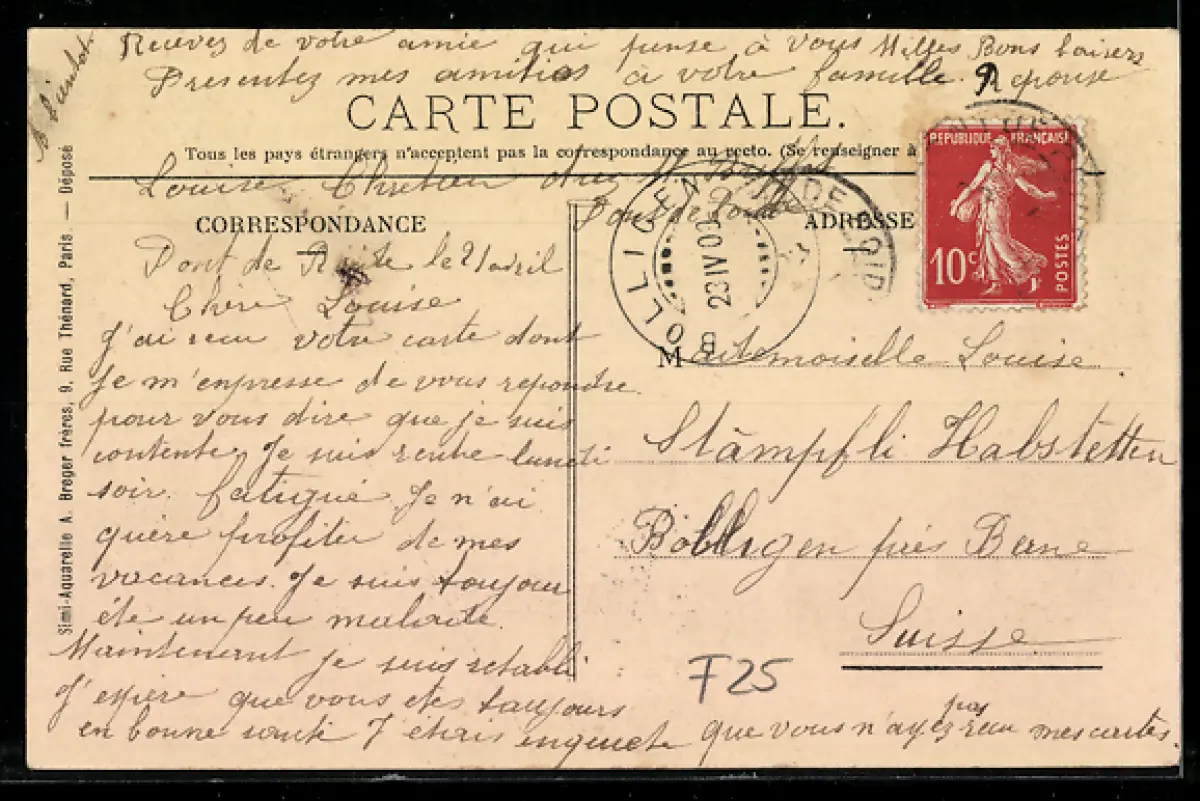 A bientot
Recevez de votre amie qui pense à vous Milles Bons baisers
Presentez mes amitiés à votre famille. Reponse
CARTE POSTALE.
Tous les pays étrangers n'acceptent pas la correspondance au recto. (Se renseigner à
Louise Chretien chez M
Pont de
CORRESPONDANCE
ADRESSE
Pont de le 21 avril
Chère Louise
J'ai recu votre carte dont
je m'enpresse de vous repondre
pour vous dire que je suis
contente. Je suis rentre lundi
soir. fatigué Je n'ai
guère profiter de mes
vacances. Je suis toujour
éte un peu malade.
Maintenant je suis retabli
J'espère que vous etes toujours
en bonne santé J étais enquiete que vous n'ayez pas recu mes cartes.
Mademoiselle Louise.
Stämpfli Habstetten
Bolligen près Berne
Suisse
F25
REPUBLIQUE FRANÇAISE
10c
POSTES
BOLLIGEN
23 IV 09
Simi-Aquarelle A. Breger frères, 9, Rue Thénard, Paris. — Déposé